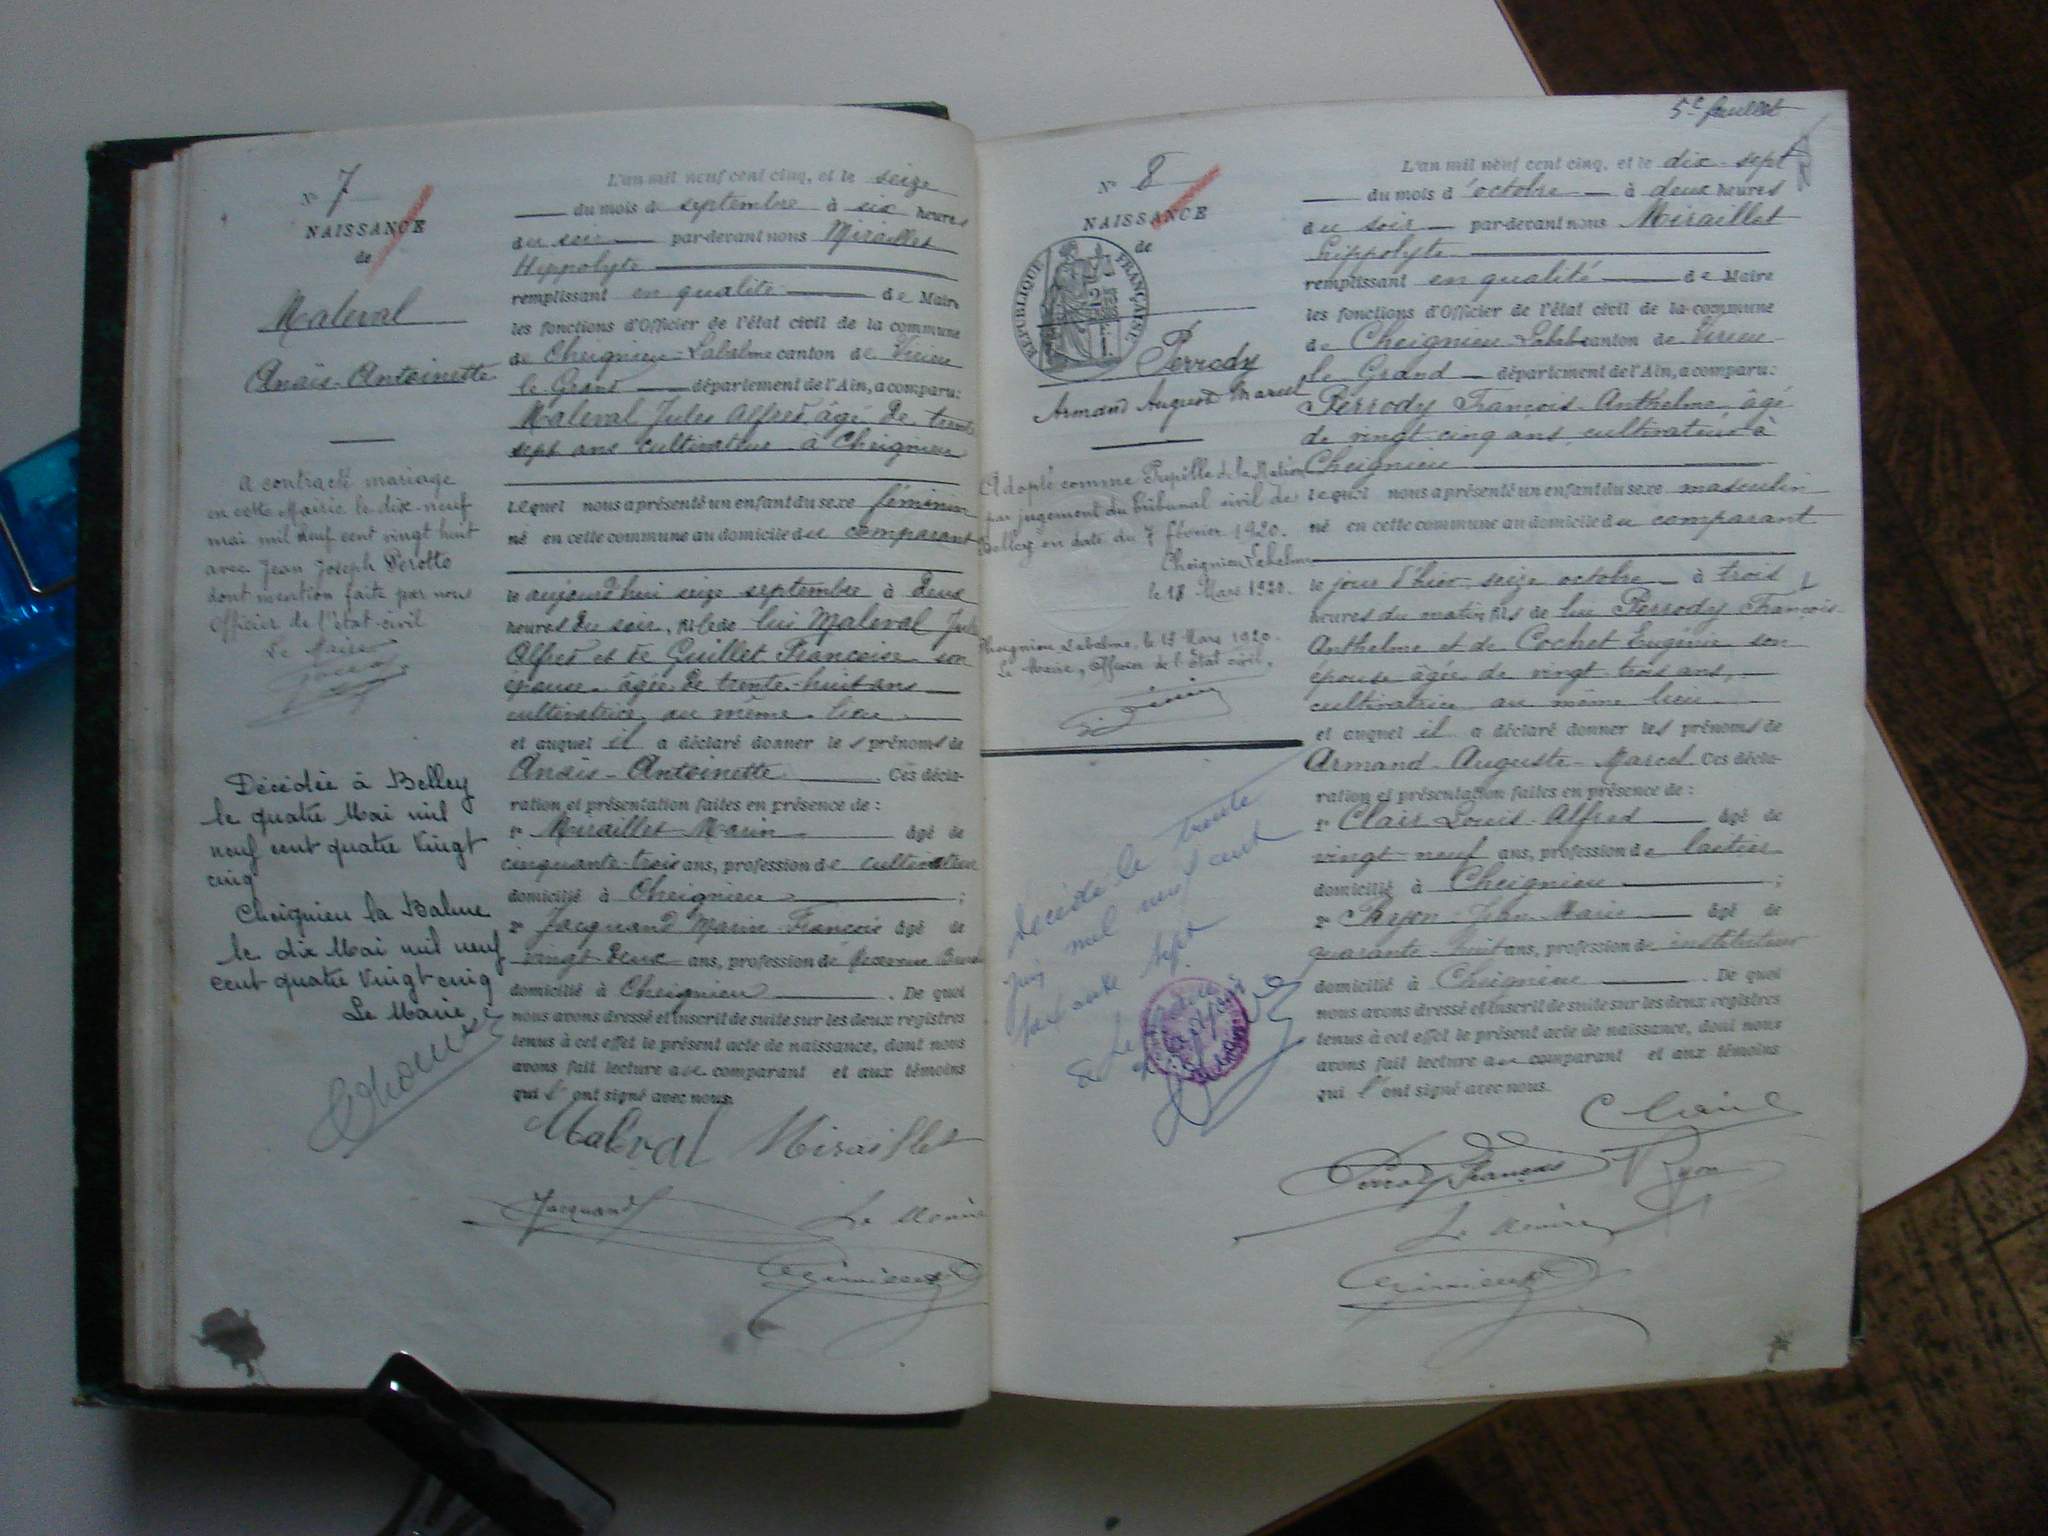 N° 7
NAISSANCE
de
Maleval
Anaïs-Antoinette
A contracté mariage
en cette Mairie le dix-neuf
mai mil neuf cent vingt huit
avec Jean Joseph Perotto
dont mention faite par nous
officier de l'état-civil
Le Maire
Décédée à Belley
le quatre Mai mil
neuf cent quatre Vingt
cinq
Cheignieu la Balme
le dix Mai mil neuf
cent quatre Vingt cinq
Le Maire,
L'an mil neuf cent cinq, et le seize
du mois de septembre à six heures
du soir par-devant nous Miraillet
Hippolyte
remplissant en qualité de Maire
les fonctions d'Officier de l'état civil de la commune
de Cheignieu-Labalme canton de Virieu
le Grand département de l'Ain, a comparu:
Maleval Jules Alfred, âgé de trente
sept ans cultivateur à Cheignieu
lequel nous a présenté un enfant du sexe féminin
né en cette commune au domicile du comparant
le aujourd'hui seize septembre à deux
heures du soir, fils de lui Maleval Jules
Alfred et de Guillet Françoise son
épouse âgée de trente-huit ans
cultivatrice au même lieu
et auquel il a déclaré donner les prénoms de
Anaïs-Antoinette. Ces décla-
ration et présentation faites en présence de:
1° Miraillet Marin âgé de
cinquante-trois ans, profession de cultivateur
domicilié à Cheignieu;
2° Jacquand Marin François âgé de
vingt-deux ans, profession de
domicilié à Cheignieu. De quoi
nous avons dressé et inscrit de suite sur les deux registres
tenus à cet effet le présent acte de naissance, dont nous
avons fait lecture au comparant et aux témoins
qui l'ont signé avec nous.
Maleval Miraillet
Jacquand Le Maire
5e feuillet
N° 8
NAISSANCE
de
RÉPUBLIQUE FRANÇAISE
Perrody
Armand August Marcel
Adopté comme Pupille de la Nation
par jugement du tribunal civil de
Belley en date du 7 février 1920.
Cheignieu Labalme
le 18 Mars 1920.
Cheignieu Labalme, le 18 Mars 1920.
Le Maire, Officier de l'état civil,
Décédé le trente
Juin mil neuf cent
soixante sept
Le
L'an mil neuf cent cinq, et le dix-sept
du mois d'octobre à deux heures
du soir par-devant nous Miraillet
hippolyte
remplissant en qualité de Maire
les fonctions d'Officier de l'état civil de la commune
de Cheignieu-Labalme canton de Virieu-
le Grand département de l'Ain, a comparu:
Perrody François-Anthelme âgé
de vingt cinq ans, cultivateur à
Cheignieu
lequel nous a présenté un enfant du sexe masculin
né en cette commune au domicile du comparant
le jour d'hier seize octobre à trois
heures du matin, fils de lui Perrody François-
Anthelme et de Cochet Eugénie son
épouse âgée de vingt-trois ans,
cultivatrice au même lieu
et auquel il a déclaré donner les prénoms de
Armand-Auguste-Marcel. Ces décla-
ration et présentation faites en présence de:
1° Clair Louis-Alfred âgé de
vingt-neuf ans, profession de laitier
domicilié à Cheignieu;
2° Jean-Marie âgé de
quarante-huit ans, profession de instituteur
domicilié à Cheignieu. De quoi
nous avons dressé et inscrit de suite sur les deux registres
tenus à cet effet le présent acte de naissance, dont nous
avons fait lecture au comparant et aux témoins
qui l'ont signé avec nous.
Clair
Perrody François
Le Maire